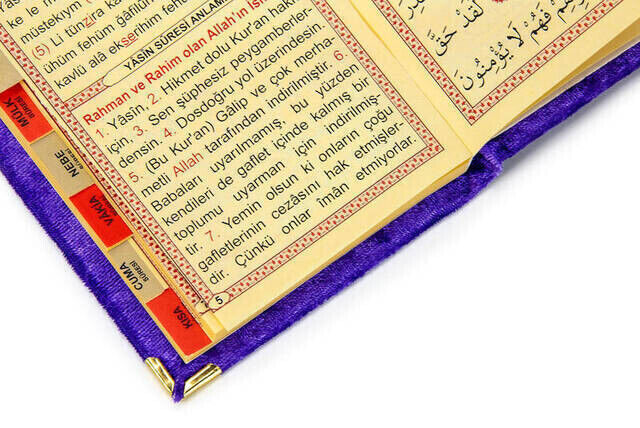 ke le m
müstekıym
(5) Li tünzira ka
ühüm fehüm ğâfilûn
kavlü alâ ekserihim fehü
YÂSÎN SÛRESİ ANLAM
Rahman ve Rahim olan Allah'ın is
1. Yâsîn, 2. Hikmet dolu Kur'an hak
için, 3. Sen şüphesiz peygamberler-
densin. 4. Dosdoğru yol üzerindesin.
5. (Bu Kur'an) Gâlip ve çok merha-
metli Allah tarafından indirilmiştir. 6.
Babaları uyarılmamış, bu yüzden
kendileri de gaflet içinde kalmış bir
toplumu uyarman için indirilmiş-
tir. 7. Yemin olsun ki onların çoğu
gafletlerinin cezâsını hak etmişler-
dir. Çünkü onlar îmân etmiyorlar.
5
لَقَدْ حَقَّ
فَهُمْ لَا يُؤْمِنُونَ
MÜLK
SÛRESİ
NEBE
VÂKIA
CUMA
SÛRESİ
KISA